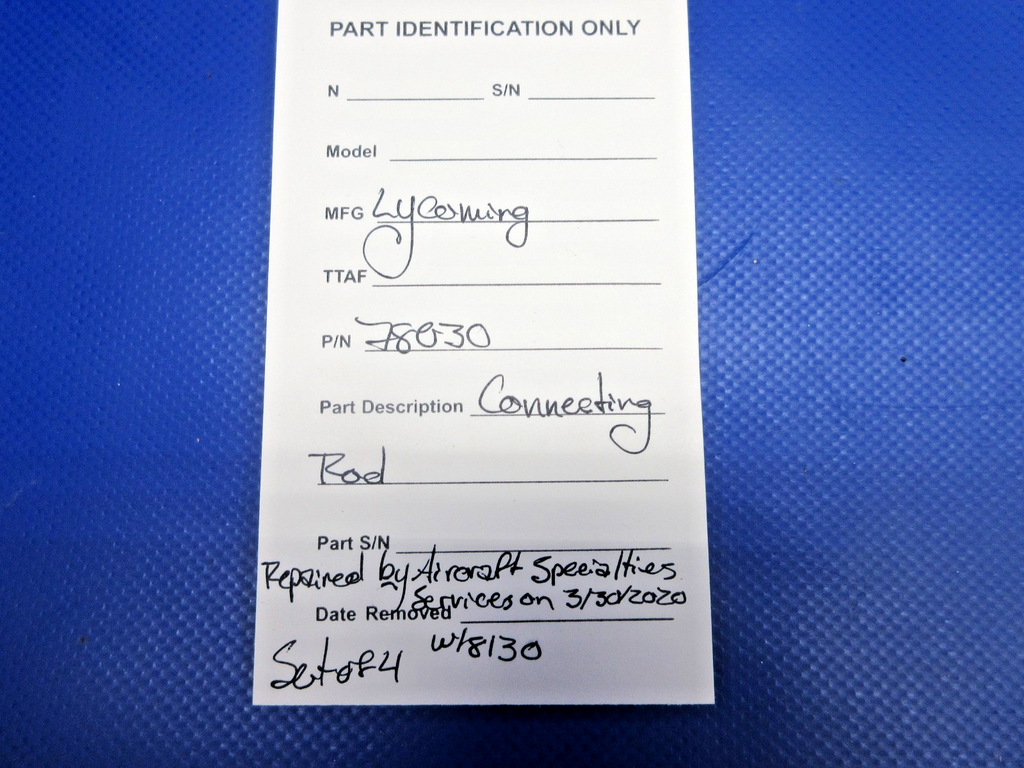 PART IDENTIFICATION ONLY
N S/N
Model
MFG Lycoming
TTAF
P/N 78030
Part Description Connecting
Rod
Part S/N
Repaired by Aircraft Specialties
Services on 3/30/2020
Date Removed
w/8130
Set of 4